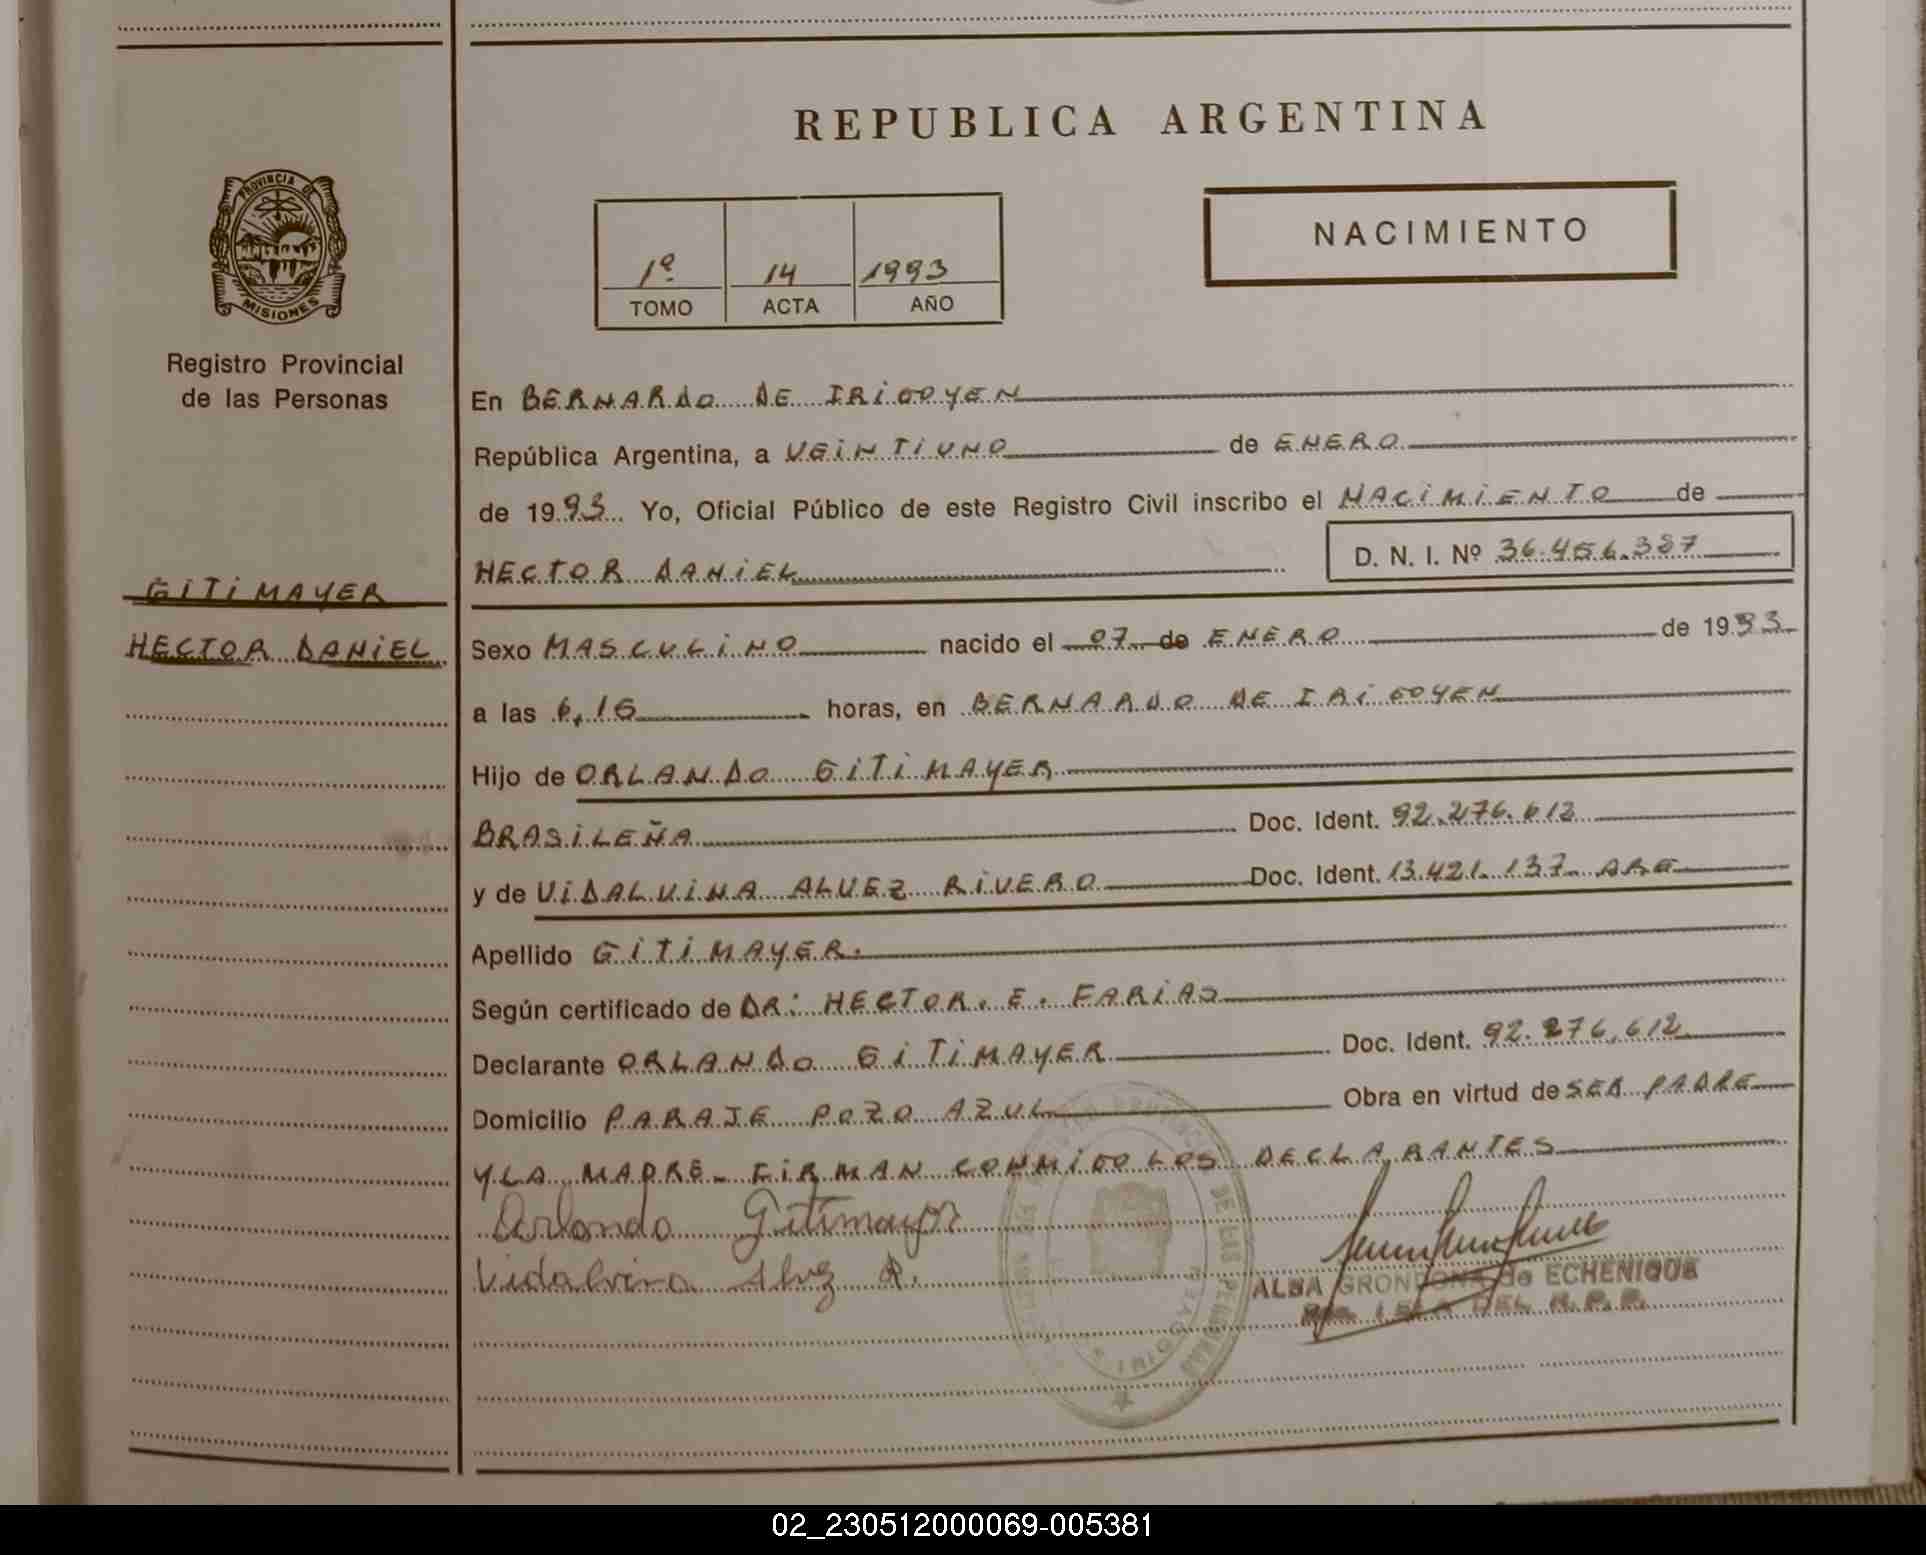 REPUBLICA ARGENTINA
PROVINCIA DE
MISIONES
Registro Provincial
de las Personas
1º 14 1993
TOMO ACTA AÑO
NACIMIENTO
En BERNARDO DE IRIGOYEN
República Argentina, a VEINTIUNO de ENERO
de 1993 Yo, Oficial Público de este Registro Civil inscribo el NACIMIENTO de
HECTOR DANIEL D. N. I. Nº 36.456.387
GITIMAYER
HECTOR DANIEL
Sexo MASCULINO nacido el 07 de ENERO de 1993
a las 6,15 horas, en BERNARDO DE IRIGOYEN
Hijo de ORLANDO GITIMAYER
BRASILEÑA Doc. Ident. 92.276.612
y de VIDALVINA ALVEZ RIVERO Doc. Ident. 13.421.137 ARG
Apellido GITIMAYER.
Según certificado de DR: HECTOR. E. FARIAS
Declarante ORLANDO GITIMAYER Doc. Ident. 92.276.612
Domicilio PARAJE POZO AZUL Obra en virtud de SER PADRE
Y LA MADRE- FIRMAN CONMIGO LOS DECLARANTES
Orlando Gitimayer
Vidalvina Alvez R.
ALBA GRONDONA de ECHENIQUE
DEL R.P.P.
DE LAS PERSONAS
02_230512000069-005381